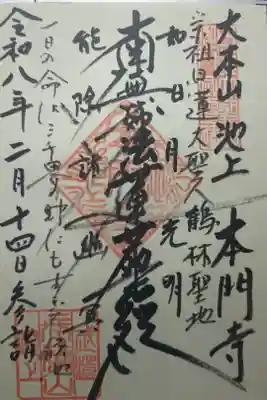 大本山池上 本門寺
宗祖日蓮大聖人 鶴林聖地
如日月光明
南無妙法蓮華経
能除諸幽冥
一日の命は三千界
令和八年二月十四日参詣